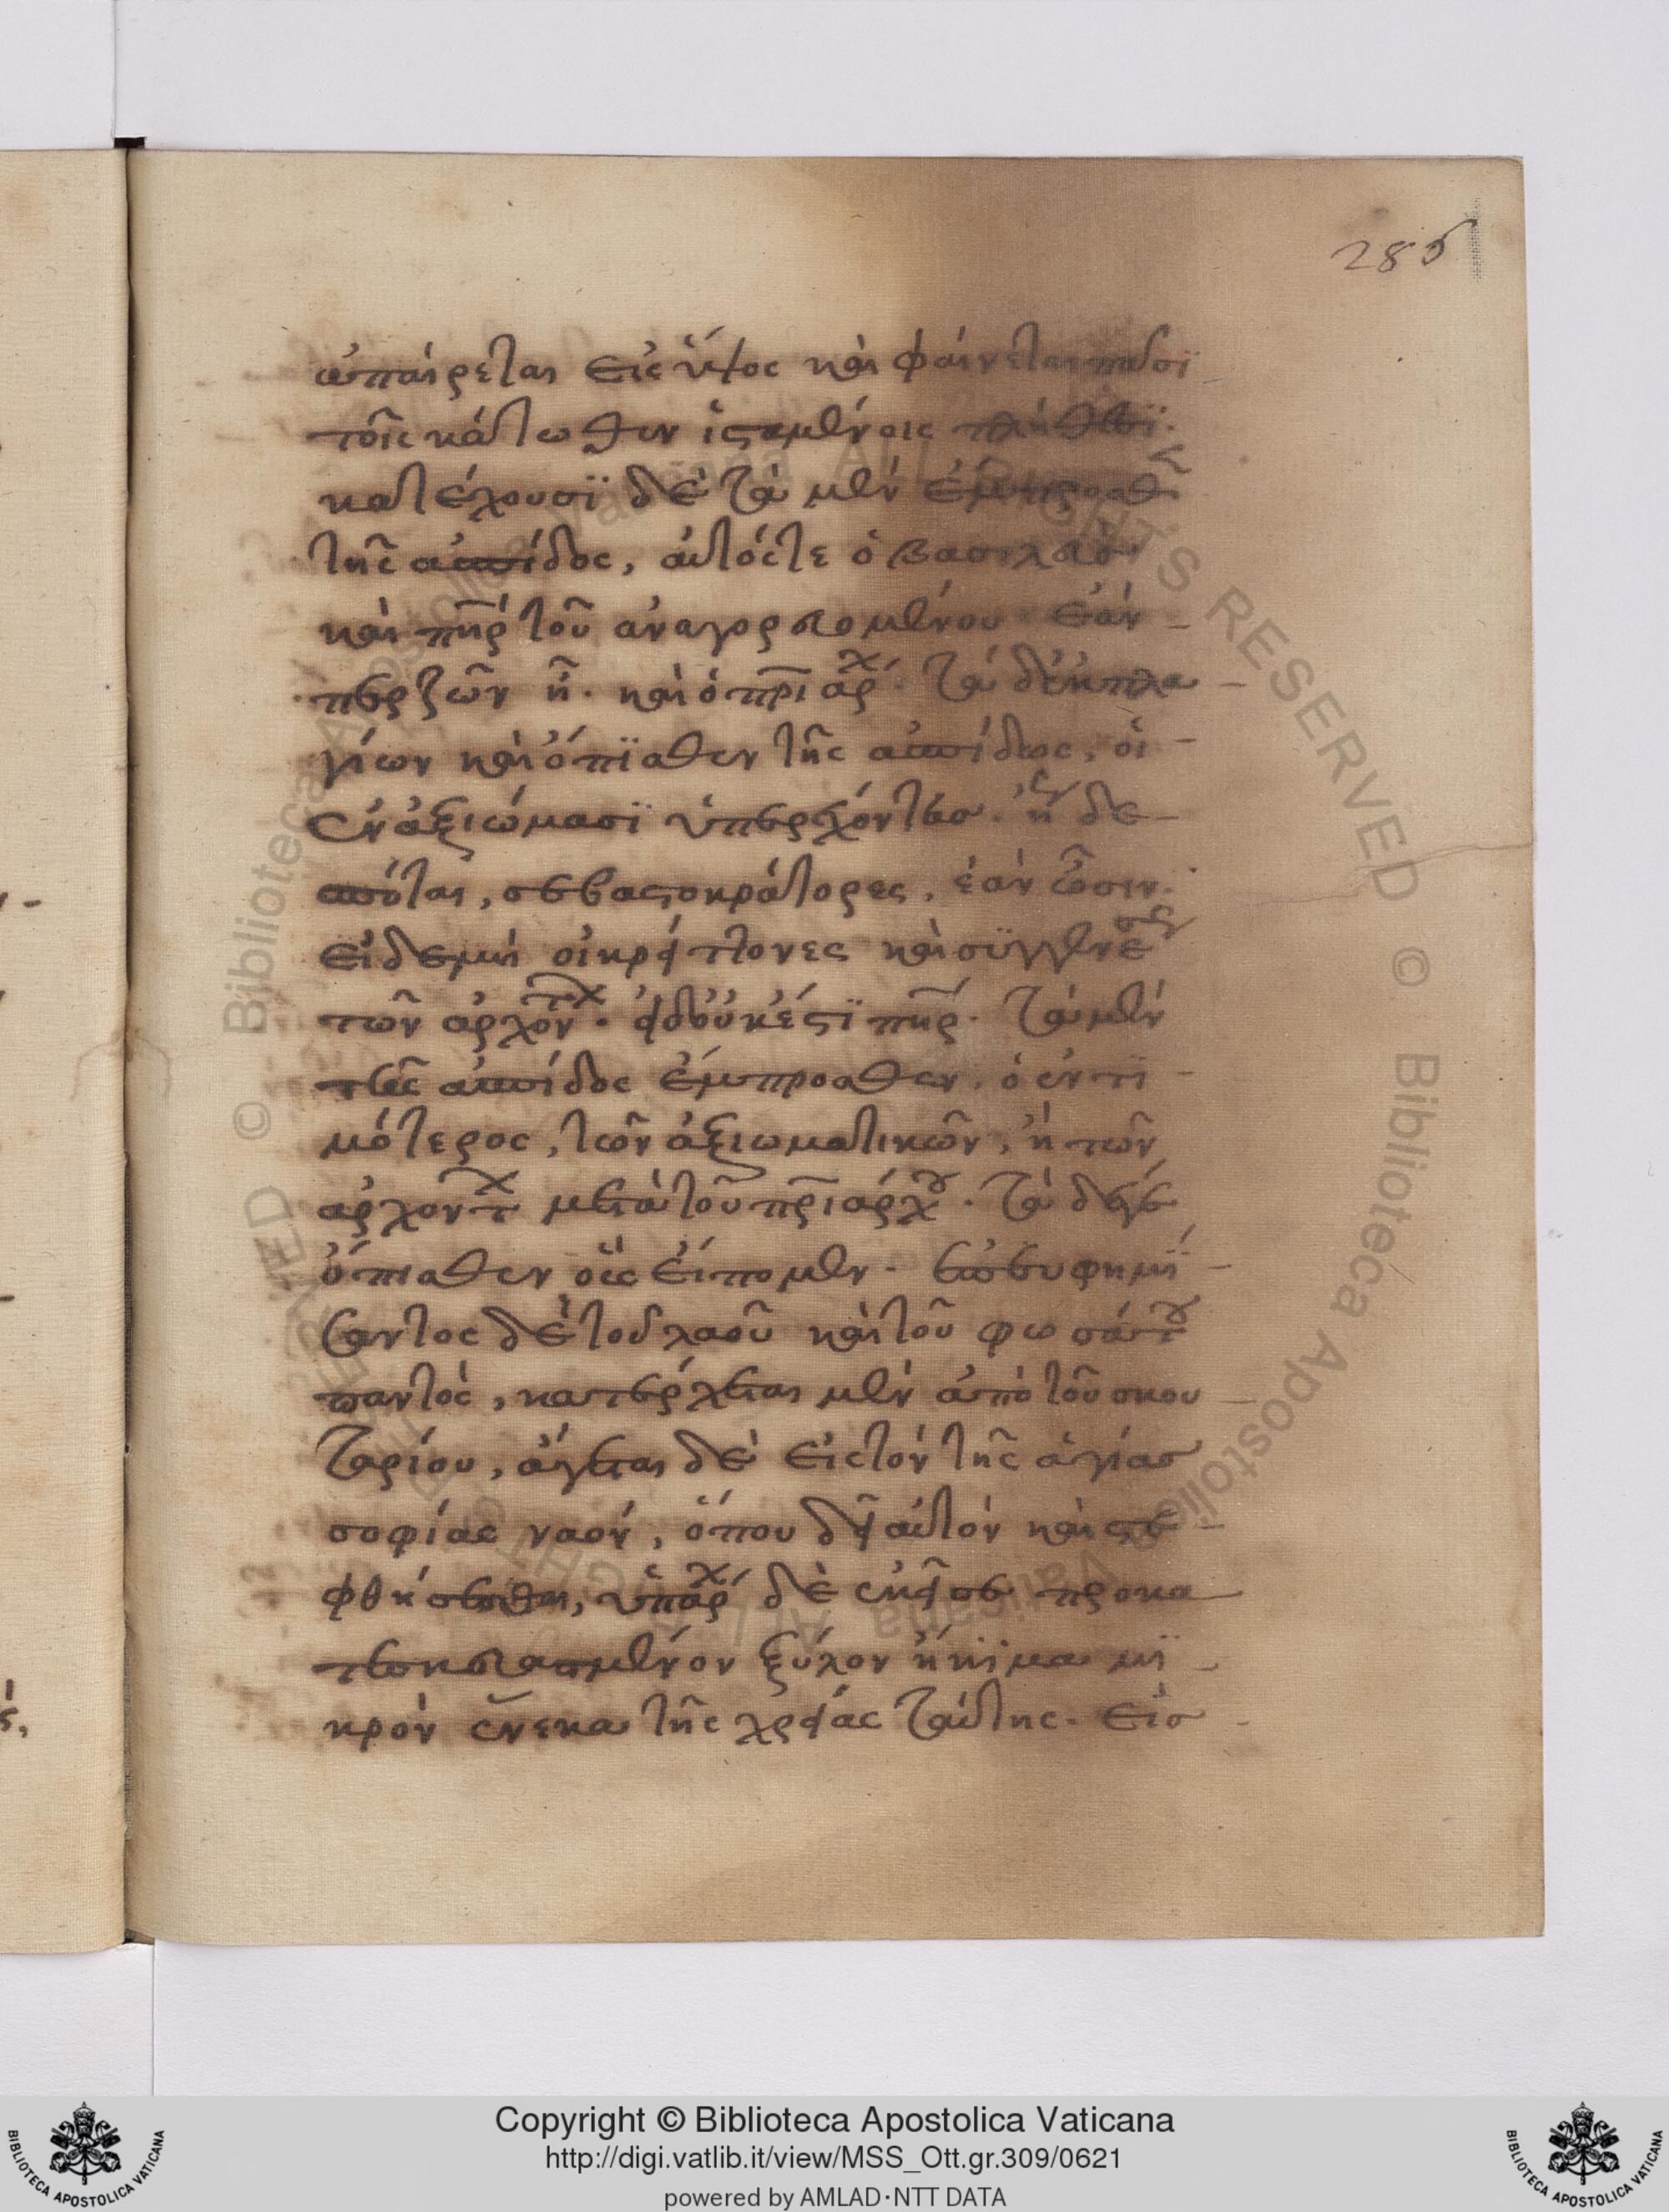 285
ἐπαίρεται εἰς ὕψος καὶ φαίνεται πᾶσι
τοῖς κάτωθεν ἱσταμένοις πλήθεσϊ.
κατέχουσϊ δὲ τὰ μὲν ἔμπροσθ
τῆς ἀσπίδος, αὐτός τε ὁ βασιλεὺς
καὶ πηρ τοῦ ἀναγορευομένου ἐάν
περ ζῶν ἦ. καὶ ὁ πριάρχ. τὰ δ' ἐκ πλα
γίων καὶ ὄπϊσθεν τῆς ἀσπίδος, οἱ
ἐν ἀξιώμασϊ ὑπερέχοντες. ἤ δε
σπόται, σεβαστοκράτορες, ἐὰν ὦσιν.
εἰ δὲ μὴ οἱ κρείττονες καὶ σϋγγενεῖς
τῶν ἀρχόντων. εἰ δ' οὐκ ἔστϊ πηρ. τὰ μὲν
τῆς ἀσπίδος ἔμπροσθεν, ὁ ἐντι
μότερος, τῶν ἀξιωματικῶν, ἢ τῶν
ἀρχόντ μετὰ τοῦ πριάρχου. τὰ δέ γε
ὄπισθεν οὓς εἴπομεν. ἐπευφημή
σαντος δὲ τοῦ λαοῦ καὶ τοῦ φωσάτου
παντὸς, κατέρχεται μὲν ἀπὸ τοῦ σκου
ταρίου, ἄγεται δὲ εἰς τὸν τῆς ἁγίας
σοφίας ναόν, ὅπου δεῖ αὐτὸν καὶ στε
φθήσεσθαι, ὑπάρχ δὲ ἐκεῖσε προκα
τεσκευασμένον ξύλον ἤκϊμα μϊ
κρὸν ἕνεκα τῆς χρείας ταύτης. εἰσ
Copyright © Biblioteca Apostolica Vaticana
http://digi.vatlib.it/view/MSS_Ott.gr.309/0621
powered by AMLAD·NTT DATA
BIBLIOTECA APOSTOLICA VATICANA
BIBLIOTECA APOSTOLICA VATICANA